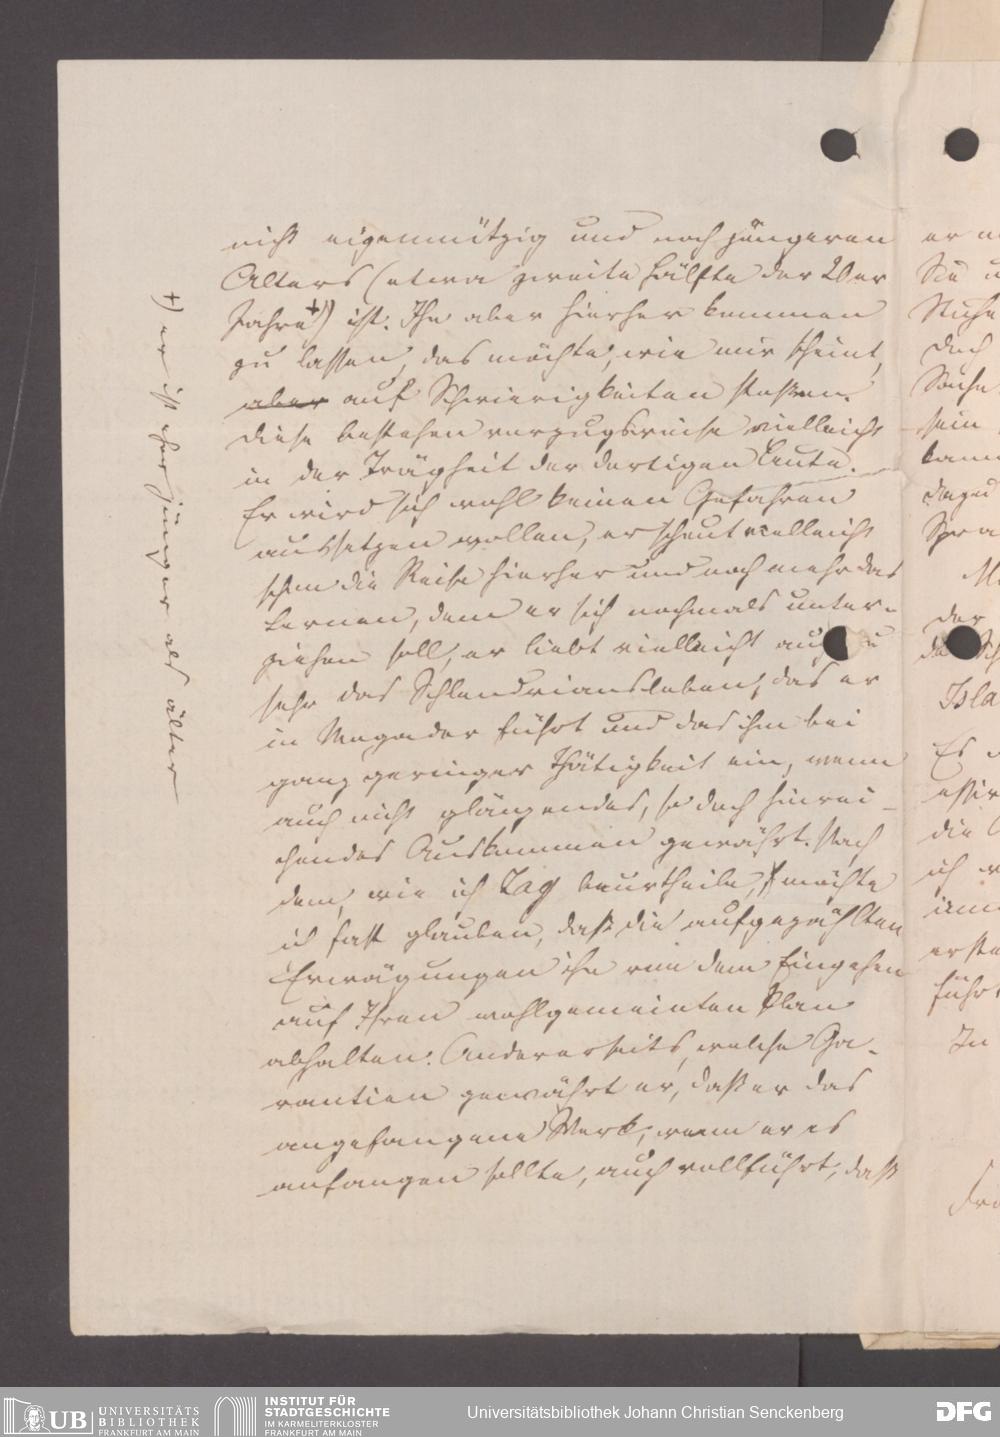 nicht eigennützig und noch jüngeren
Alters (etwa zweite Hälfte der 20er
Jahre +)) ist. Ihn aber hierher kommen
zu lassen, das möchte, wie mir scheint,
aber auf Schwierigkeiten stoßen.
Diese bestehen vorzugsweise vielleicht
in der Trägheit der dortigen Leute.
Er wird sich wohl keinen Gefahren
aussetzen wollen, er scheut vielleicht
schon die Reise hierher und noch mehr das
Lernen, dem er sich nochmals unter-
ziehen soll, er liebt vielleicht auch zu
sehr das Schlendriansleben, das er
in Mogador führt und das ihm bei
ganz geringer Thätigkeit ein, wenn
auch nicht glänzendes, so doch hinrei-
chendes Auskommen gewährt. Nach
dem, wie ich beurtheile, möchte
ich fast glauben, daß die aufgezählten
Erwägungen ihn von dem Eingehen
auf Ihren wohlgemeinten Plan
abhalten. Andererseits, welche Ga-
rantien gewährt er, daß er das
angefangene Werk, wenn er es
anfangen sollte, auch vollführt, daß
+) er ist eher jünger als älter
UB UNIVERSITÄTS
BIBLIOTHEK
FRANKFURT AM MAIN
INSTITUT FÜR
STADTGESCHICHTE
IM KARMELITERKLOSTER
FRANKFURT AM MAIN
Universitätsbibliothek Johann Christian Senckenberg
DFG